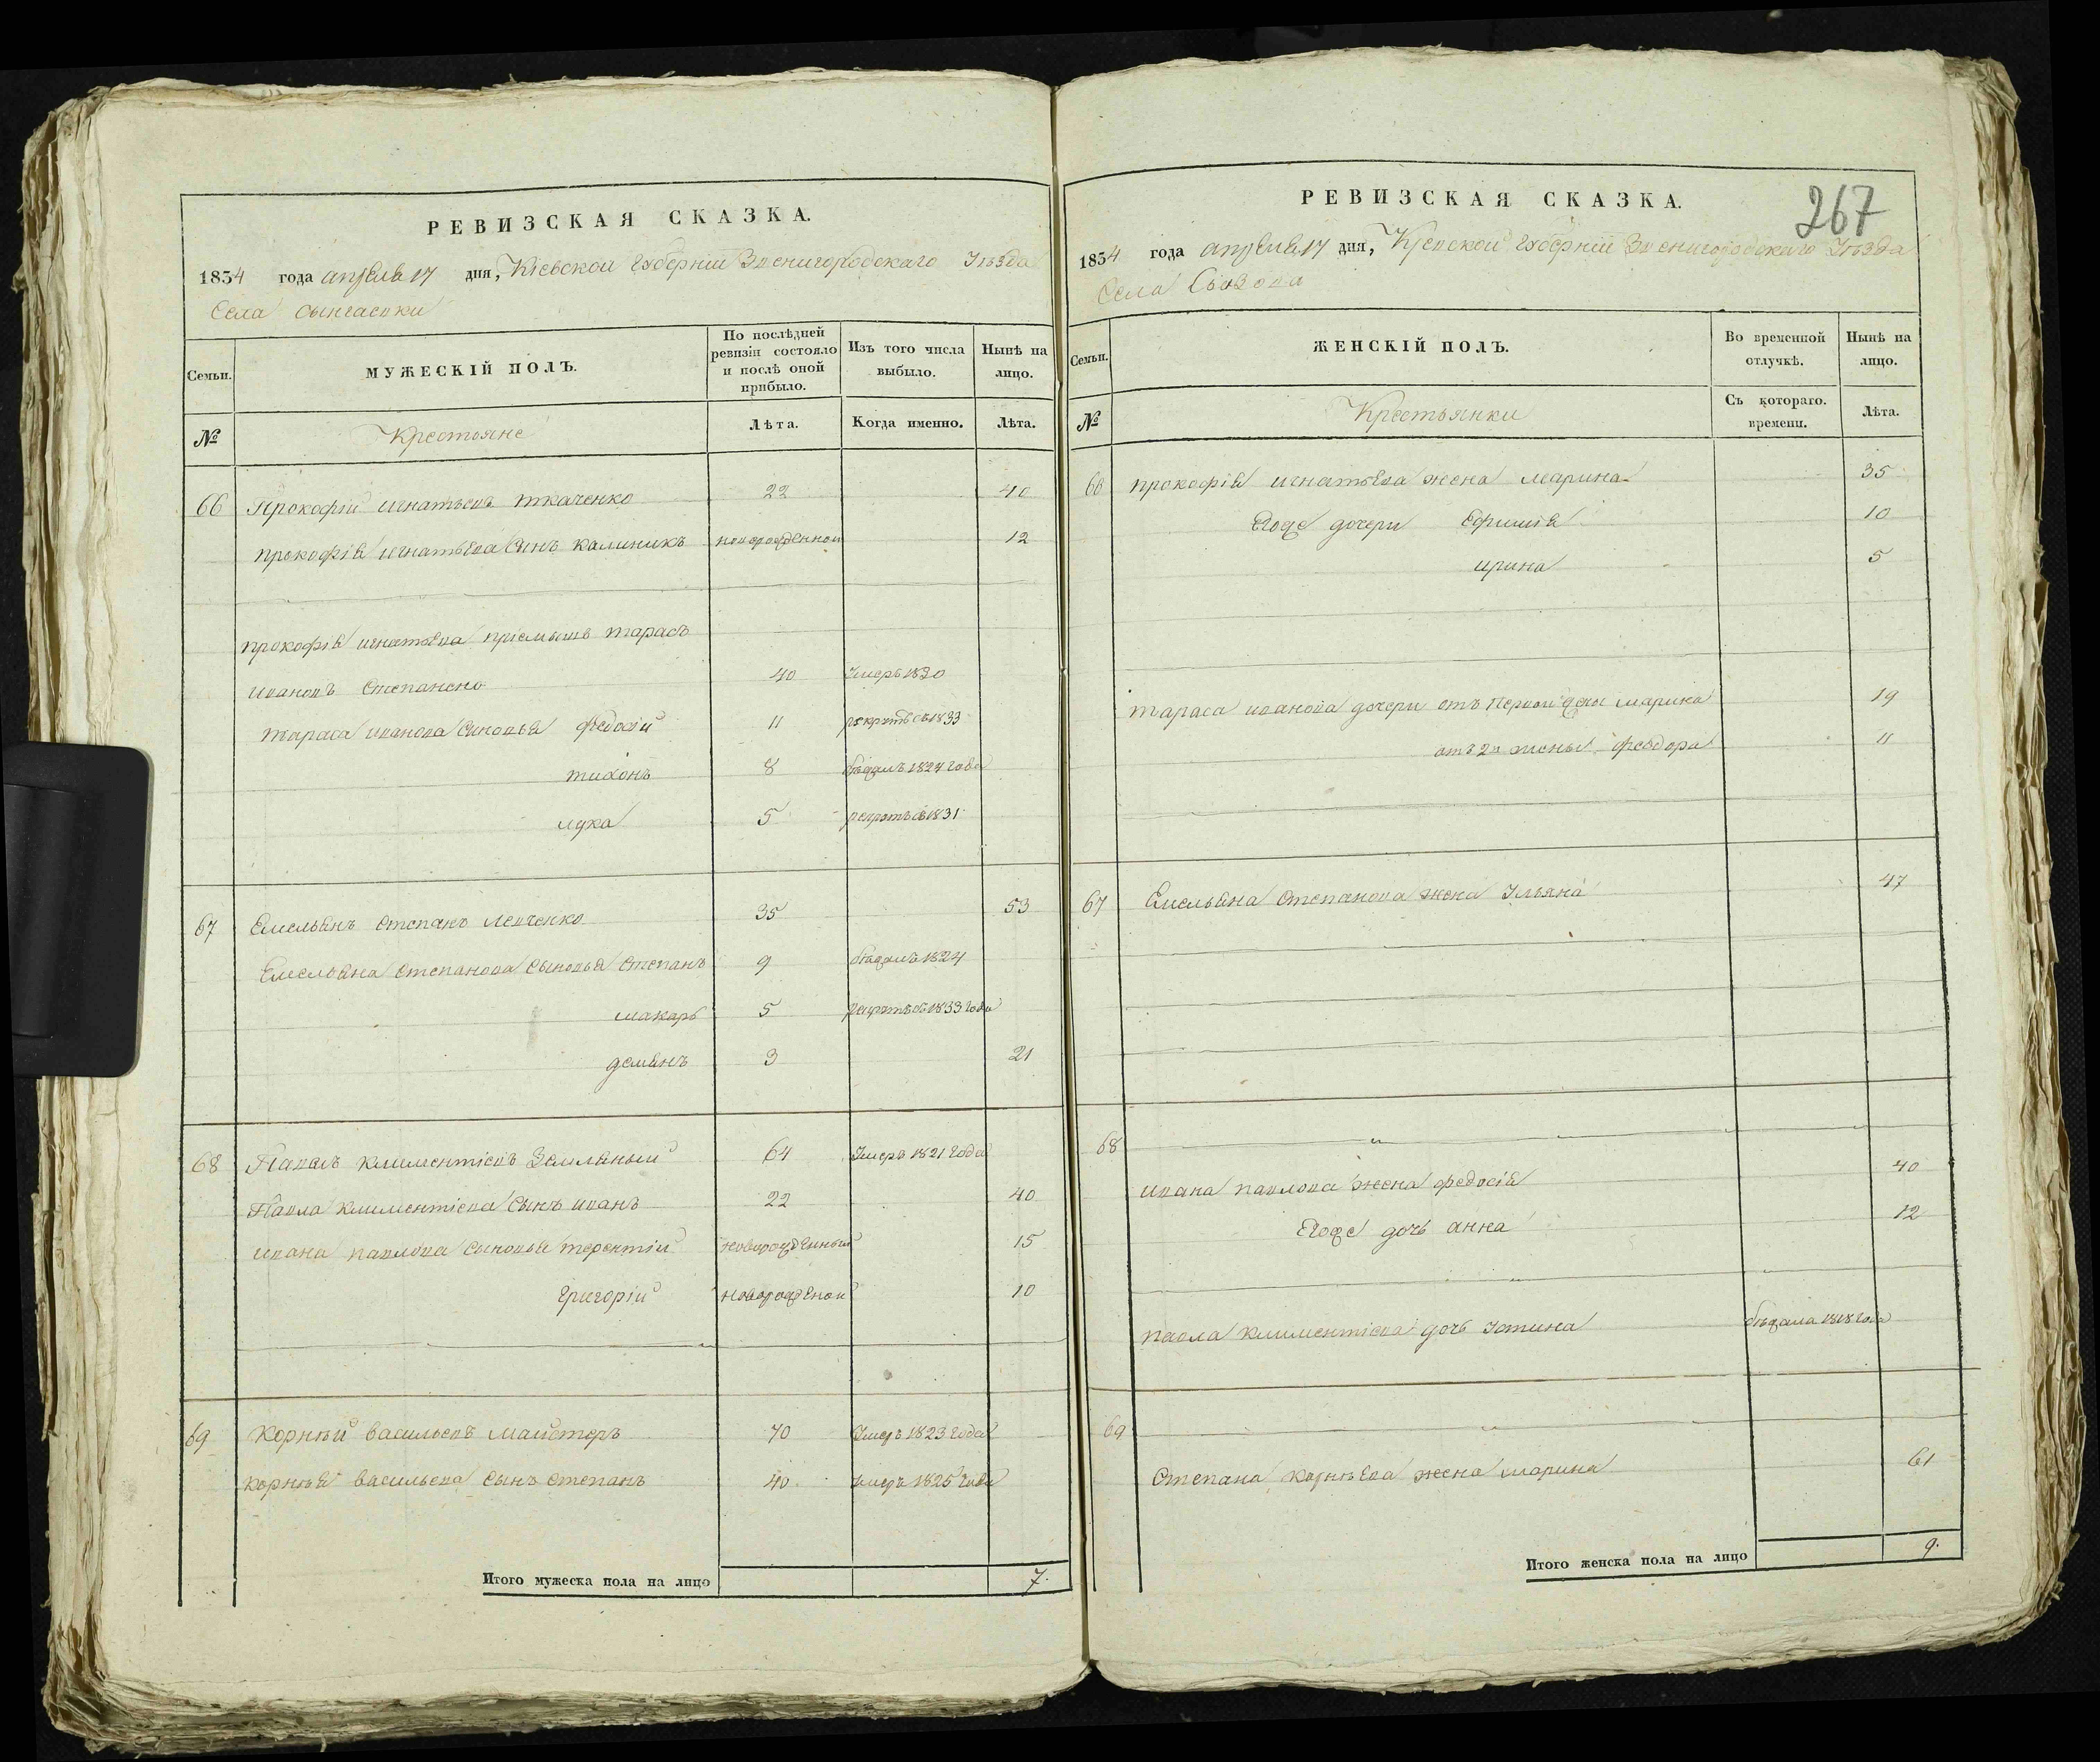 РЕВИЗСКАЯ СКАЗКА.
1834 года апреля 17 дня, Кіевской Губерніи Звенигородскаго Уѣзда
Села
Семьи.
МУЖЕСКІЙ ПОЛЪ.
По послѣдней ревизіи состояло и послѣ оной прибыло.
Изъ того числа выбыло.
Нынѣ на лицо.
№
Крестьяне
Лѣта.
Когда именно.
Лѣта.
66 Прокофій игнатьевъ ткаченко 22 40
прокофія игнатьева сынъ калиникъ новорожденной 12
прокофія игнатьева пріемышъ тарасъ
ивановъ Степаненко 40 Умеръ 1830
тараса иванова сыновья федосій 11 рекрутъ съ 1833
тихонъ 8 бѣжалъ 1824 года
лука 5 рекрутъ съ 1831
67 Емельянъ степанъ левченко 35 53
Емельяна степанова сыновья степанъ 9 бѣжалъ 1824
макаръ 5 рекрутъ съ 1833 года
демянъ 3 21
68 Павелъ климентіевъ Земляный 64 Умеръ 1821 года
Павла климентіева сынъ иванъ 22 40
ивана павлова сыновья терентій новорожденный 15
григорій новорожденой 10
69 Корнѣй васильевъ майстеръ 70 Умеръ 1823 года
корнѣя васильева сынъ степанъ 40 умеръ 1825 года
Итого мужеска пола на лицо 7.
РЕВИЗСКАЯ СКАЗКА.
267
1834 года апреля 17 дня, Кіевской Губерніи Звенигородскаго Уѣзда
Села
Семьи.
ЖЕНСКІЙ ПОЛЪ.
Во временной отлучкѣ.
Нынѣ на лицо.
№
Крестьянки
Съ котораго. времени.
Лѣта.
66 прокофія игнатьева жена марина 35
Егоже дочери Ефимія 10
ирина 5
тараса иванова дочери отъ первой жены марина 19
отъ 2й жены феодора 11
67 Емельяна степанова жена Ульяна 47
68
ивана павлова жена федосія 40
Егоже дочь анна 12
павла климентіева дочь Устина бѣжала 1818 года
69
степана корнѣева жена марина 61
Итого женска пола на лицо 9.